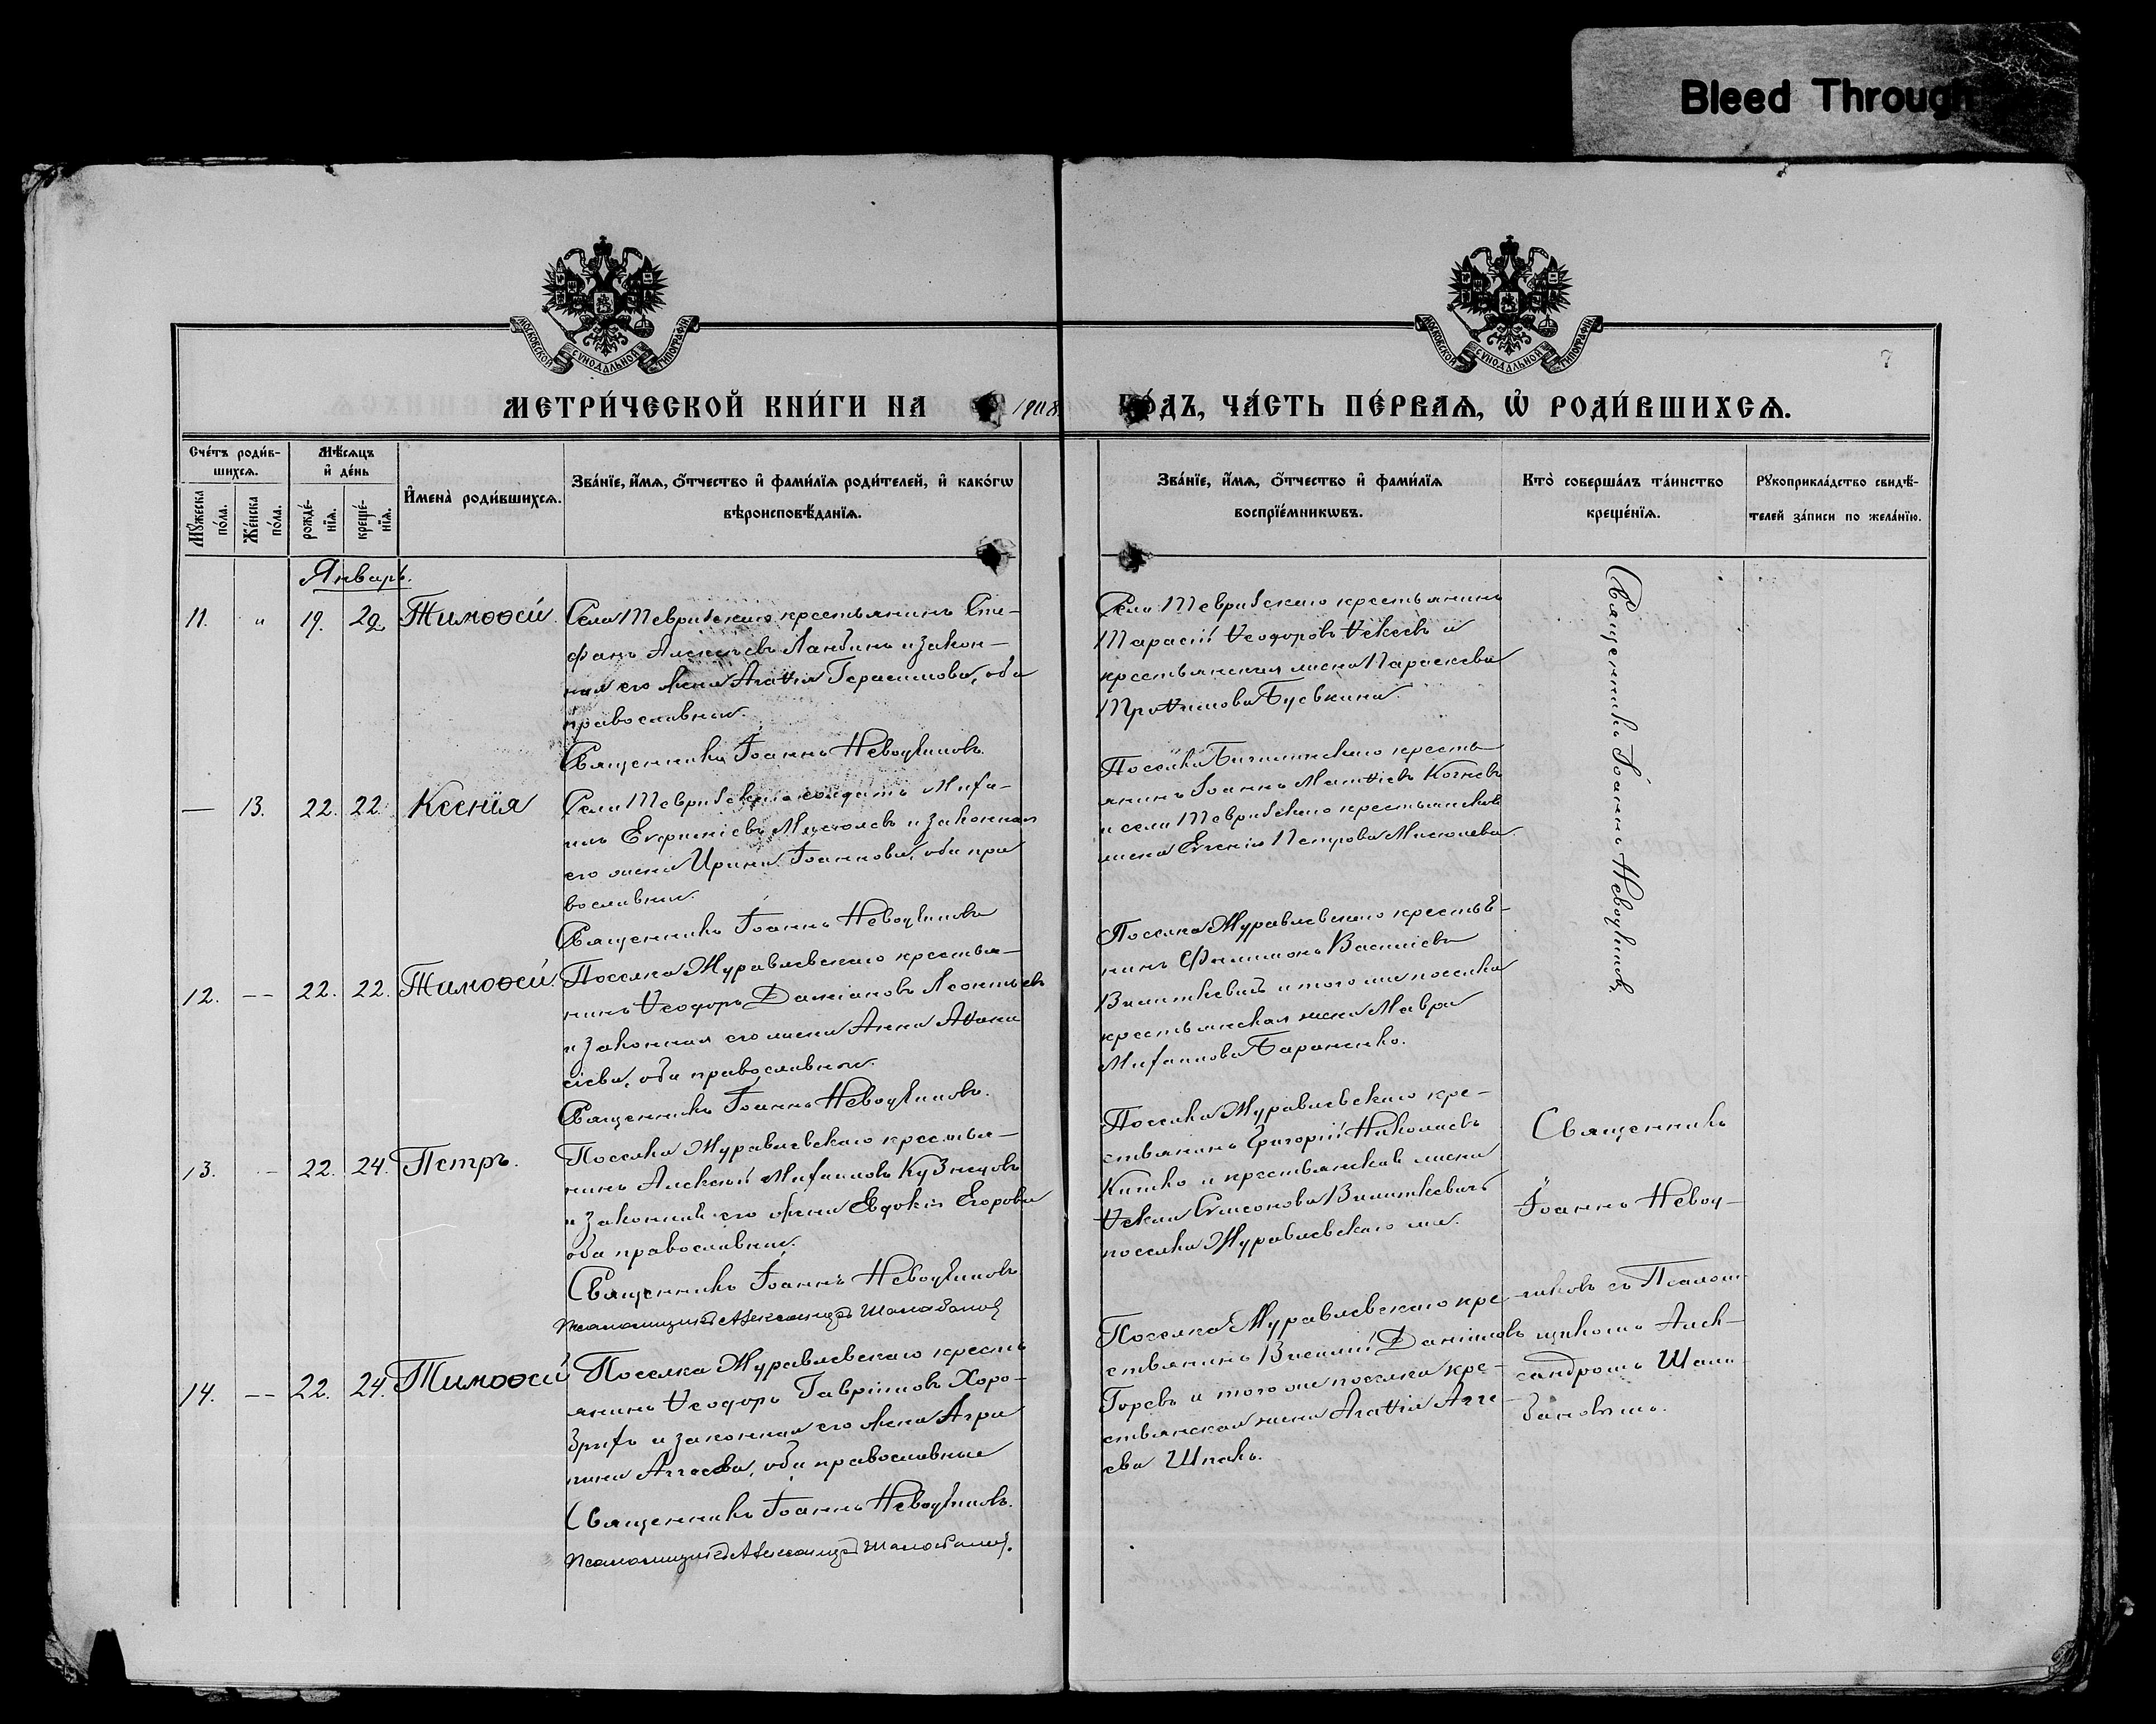 Bleed Through
МОСКОВСКОЙ СѴНОДАЛЬНОЙ ТИПОГРАФІИ
МОСКОВСКОЙ СѴНОДАЛЬНОЙ ТИПОГРАФІИ
7
МЕТРИ́ЧЕСКОЙ КНИ́ГИ НА 1908 ГО́ДЪ, ЧА́СТЬ ПЕ́РВАѦ, Ѡ҆ РОДИ́ВШИХСѦ.
Сче́тъ роди́в-
шихсѧ.
Мꙋ́жеска по́ла.
Же́нска по́ла.
Мѣ́сѧцъ
и҆ де́нь
рожде́-нїѧ.
креще́-нїѧ.
И҆мена̀ роди́вшихсѧ.
Зва́нїе, и҆́мѧ, ѻ҆́тчество и҆ фами́лїѧ роди́телей, и҆ како́гѡ
вѣроисповѣ́данїѧ.
Зва́нїе, и҆́мѧ, ѻ҆́тчество и҆ фами́лїѧ
воспрїе́мникѡвъ.
Кто̀ соверша́лъ та́инство
креще́нїѧ.
Рꙋкоприкла́дство свидѣ́-
телей за́писи по жела́нїю.
Январь.
11. „ 19. 22 Тимоѳей
Села Тевризскаго крестьянинъ Сте-
фанъ Алексѣевъ Ланбинъ и закон-
ная его жена Агаѳія Герасимова, оба
православные.
Священникъ Іоаннъ Неводчиковъ.
Села Тевризскаго крестьянинъ
Тарасій Ѳеодоровъ и
крестьянская жена Параскева
Трофимова Буевкина
Священникъ Іоаннъ Неводчиковъ
— 13. 22. 22. Ксенія
Села Тевризскаго солдатъ Миха-
илъ Мисюлевъ и законная
его жена Ирина Іоаннова, оба пра
вославные.
Священникъ Іоаннъ Неводчиковъ
Поселка крестья
янинъ Іоаннъ Матѳіевъ Когневъ
и села Тевризскаго крестьянская
жена Евгенія Петрова Мисюлева
12. — 22. 22. Тимоѳей.
Поселка Журавлевскаго крестья-
нинъ Ѳеодоръ Даміановъ Леонтьевъ
и законная его жена Анна Аѳана
сіева, оба православные.
Священникъ Іоаннъ Неводчиковъ.
Поселка Журавлевскаго крестья-
нинъ Филимонъ Васильевъ
Вилиткевичъ и того же поселка
крестьянская жена Мавра
Михаилова Бараненко.
13. — 22. 24. Петръ.
Поселка Журавлевскаго крестья-
нинъ Алексѣй Михаиловъ Кузнецовъ
и законная его жена Евдокія Егорова
оба православные.
Священникъ Іоаннъ Неводчиковъ
Псаломщикъ Александръ Шалабановъ
Поселка Журавлевскаго кре-
стьянинъ Григорій Николаевъ
Китко и крестьянская жена
Ѳекла Симеонова Вилиткевичъ
поселка Журавлевскаго же.
Священникъ
Іоаннъ Невод-
чиковъ съ Псалом-
щикомъ Алек-
сандромъ Шала-
бановымъ.
14. — 22. 24. Тимоѳей
Поселка Журавлевскаго кресть
янинъ Ѳеодоръ Гавріиловъ Хоро-
зрихъ и законная его жена Агри
пина Аггеева, оба православные
Священникъ Іоаннъ Неводчиковъ.
Псаломщикъ Александръ Шалабановъ.
Поселка Журавлевскаго кре-
стьянинъ Василій Даніиловъ
Горевъ и того же поселка кре-
стьянская жена Агаѳія Агге-
ева Шпакъ.